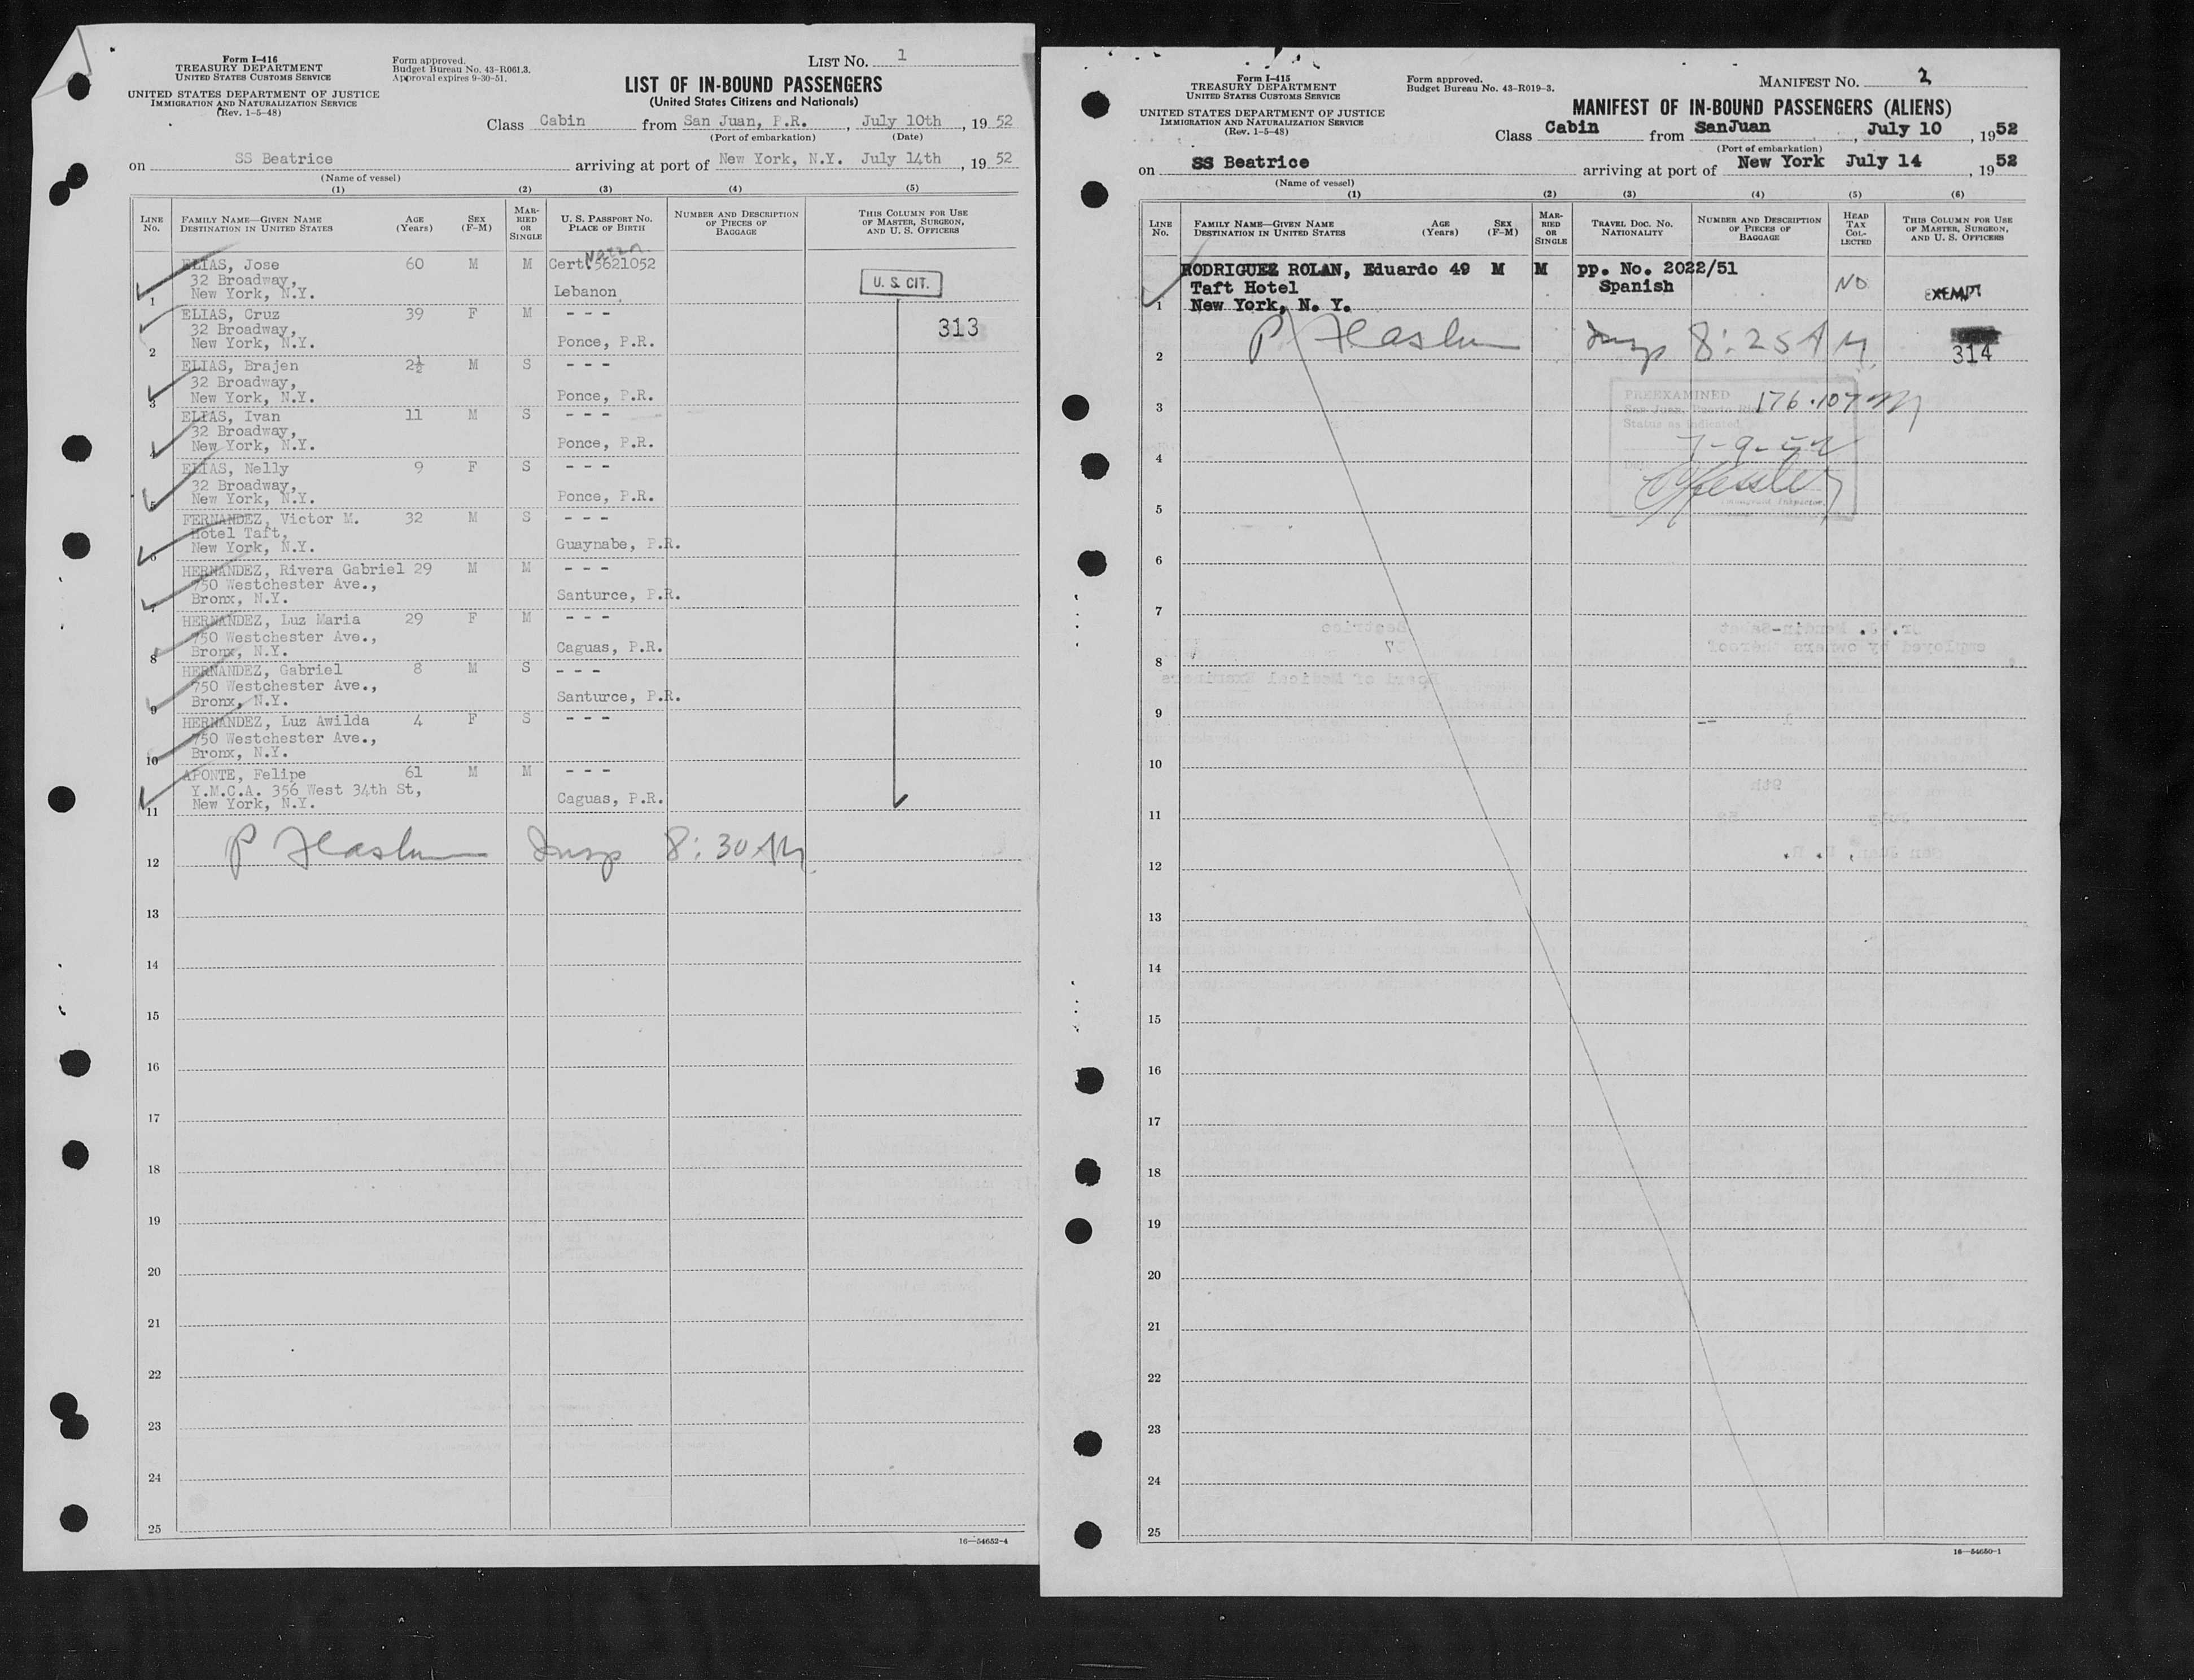 Form I-416
TREASURY DEPARTMENT
UNITED STATES CUSTOMS SERVICE
UNITED STATES DEPARTMENT OF JUSTICE
IMMIGRATION AND NATURALIZATION SERVICE
(Rev. 1-5-48)
Form approved.
Budget Bureau No. 43-R061.3.
Approval expires 9-30-51.
LIST No. 1
LIST OF IN-BOUND PASSENGERS
(United States Citizens and Nationals)
Class Cabin from San Juan, P.R., July 10th, 19 52
(Port of embarkation) (Date)
on SS Beatrice arriving at port of New York, N.Y. July 14th, 19 52
(Name of vessel)
(1) (2) (3) (4) (5)
LINE No.
FAMILY NAME—GIVEN NAME
DESTINATION IN UNITED STATES
AGE (Years)
SEX (F-M)
MARRIED OR SINGLE
U. S. PASSPORT NO.
PLACE OF BIRTH
NUMBER AND DESCRIPTION OF PIECES OF BAGGAGE
THIS COLUMN FOR USE OF MASTER, SURGEON, AND U. S. OFFICERS
ELIAS, Jose 60 M M Cert. 5621052
32 Broadway,
1 New York, N.Y. Lebanon
U. S. CIT.
ELIAS, Cruz 39 F M - - -
32 Broadway,
2 New York, N.Y. Ponce, P.R.
313
ELIAS, Brajen 2½ M S - - -
32 Broadway,
3 New York, N.Y. Ponce, P.R.
ELIAS, Ivan 11 M S - - -
32 Broadway,
4 New York, N.Y. Ponce, P.R.
ELIAS, Nelly 9 F S - - -
32 Broadway,
5 New York, N.Y. Ponce, P.R.
FERNANDEZ, Victor M. 32 M S - - -
Hotel Taft,
6 New York, N.Y. Guaynabe, P.R.
HERNANDEZ, Rivera Gabriel 29 M M - - -
750 Westchester Ave.,
7 Bronx, N.Y. Santurce, P.R.
HERNANDEZ, Luz Maria 29 F M - - -
750 Westchester Ave.,
8 Bronx, N.Y. Caguas, P.R.
HERNANDEZ, Gabriel 8 M S - - -
750 Westchester Ave.,
9 Bronx, N.Y. Santurce, P.R.
HERNANDEZ, Luz Awilda 4 F S - - -
750 Westchester Ave.,
10 Bronx, N.Y.
APONTE, Felipe 61 M M - - -
Y.M.C.A. 356 West 34th St,
11 New York, N.Y. Caguas, P.R.
12 P Insp 8:30 AM
13
14
15
16
17
18
19
20
21
22
23
24
25
16—54652-4
Form I-415
TREASURY DEPARTMENT
UNITED STATES CUSTOMS SERVICE
UNITED STATES DEPARTMENT OF JUSTICE
IMMIGRATION AND NATURALIZATION SERVICE
(Rev. 1-5-48)
Form approved.
Budget Bureau No. 43-R019-3.
MANIFEST No. 2
MANIFEST OF IN-BOUND PASSENGERS (ALIENS)
Class Cabin from SanJuan, July 10, 19 52
(Port of embarkation)
on SS Beatrice arriving at port of New York July 14, 19 52
(Name of vessel)
(1) (2) (3) (4) (5) (6)
LINE No.
FAMILY NAME—GIVEN NAME
DESTINATION IN UNITED STATES
AGE (Years)
SEX (F-M)
MARRIED OR SINGLE
TRAVEL DOC. NO.
NATIONALITY
NUMBER AND DESCRIPTION OF PIECES OF BAGGAGE
HEAD TAX COLLECTED
THIS COLUMN FOR USE OF MASTER, SURGEON, AND U. S. OFFICERS
RODRIGUEZ ROLAN, Eduardo 49 M M pp. No. 2022/51
Taft Hotel Spanish NO EXEMPT
1 New York, N. Y.
2 P Insp 8:25 AM 314
PREEXAMINED 176.107
San Juan, Puerto Rico
3
Status as indicated
7-9-52
4
Immigrant Inspector
5
6
7
8
9
10
11
12
13
14
15
16
17
18
19
20
21
22
23
24
25
16—54650-1